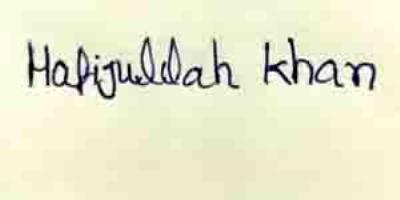 Hafijuddah khan